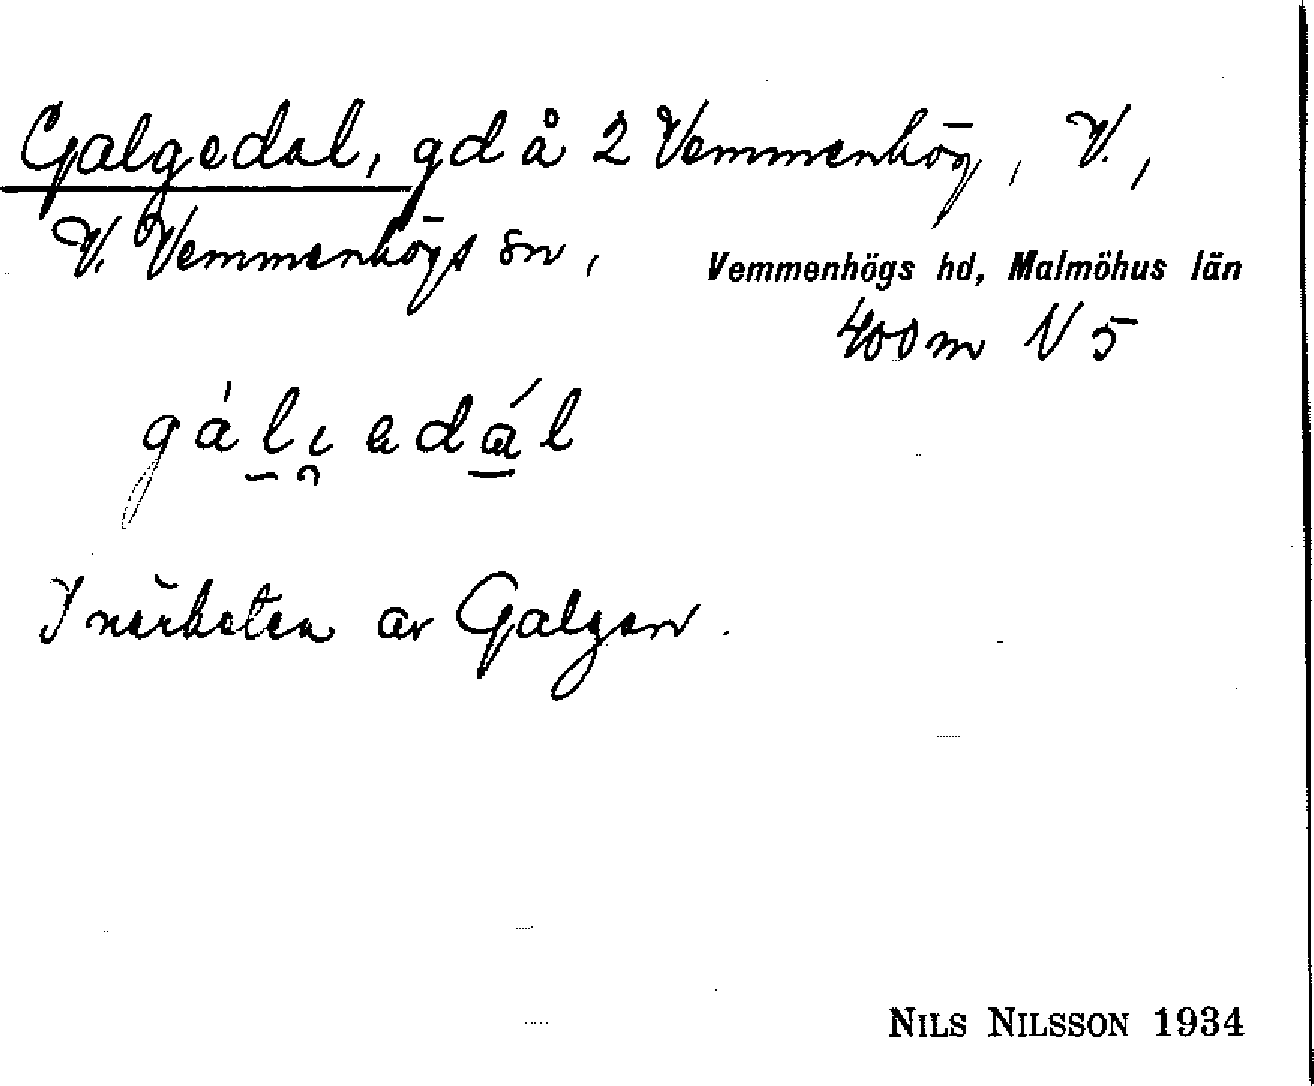 Galgedal, gd å 2 Vemmenhög, V.,
V. Vemmenhögs sn,
Vemmenhögs hd, Malmöhus län
400 m N 5
gàl̠ı̯edál
I närheten av Galgen.
NILS NILSSON 1934